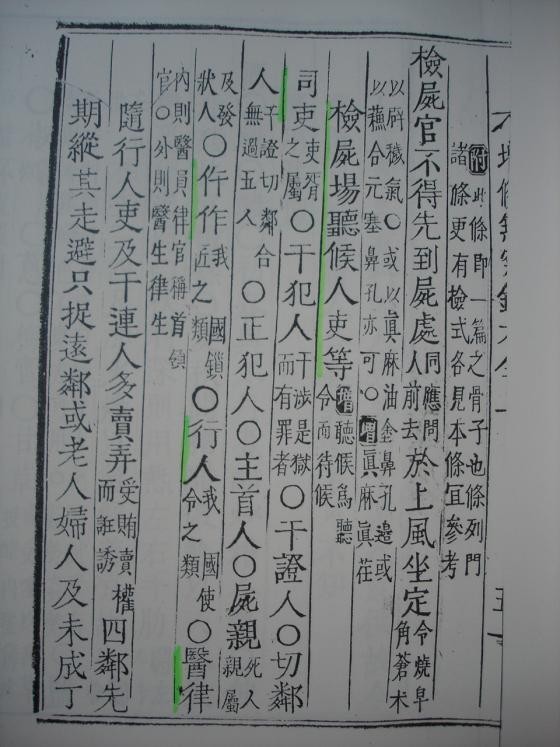 附此條即一篇之骨子也條列門
諸條更有檢式各見本條宜參考
檢屍官不得先到屍處同應問人前去於上風坐定令燒皁角蒼朮
以辟穢氣○或以眞麻油塗鼻孔邊或
以蘓合元塞鼻孔亦可○增眞麻眞荏
檢屍場聽候人吏等增聽候爲聽令而待候
司吏吏胥之屬○干犯人干涉是獄而有罪者○干證人○切鄰
人干證切鄰合無過五人○正犯人○主首人○屍親死人親屬
及發狀人○仵作我國鎖匠之類○行人我國使令之類○醫律
內則醫員律官稱首領
官○外則醫生律生
隨行人吏及干連人多賣弄受賄賣權而誑誘四鄰先
期縱其走避只捉遠鄰或老人婦人及未成丁